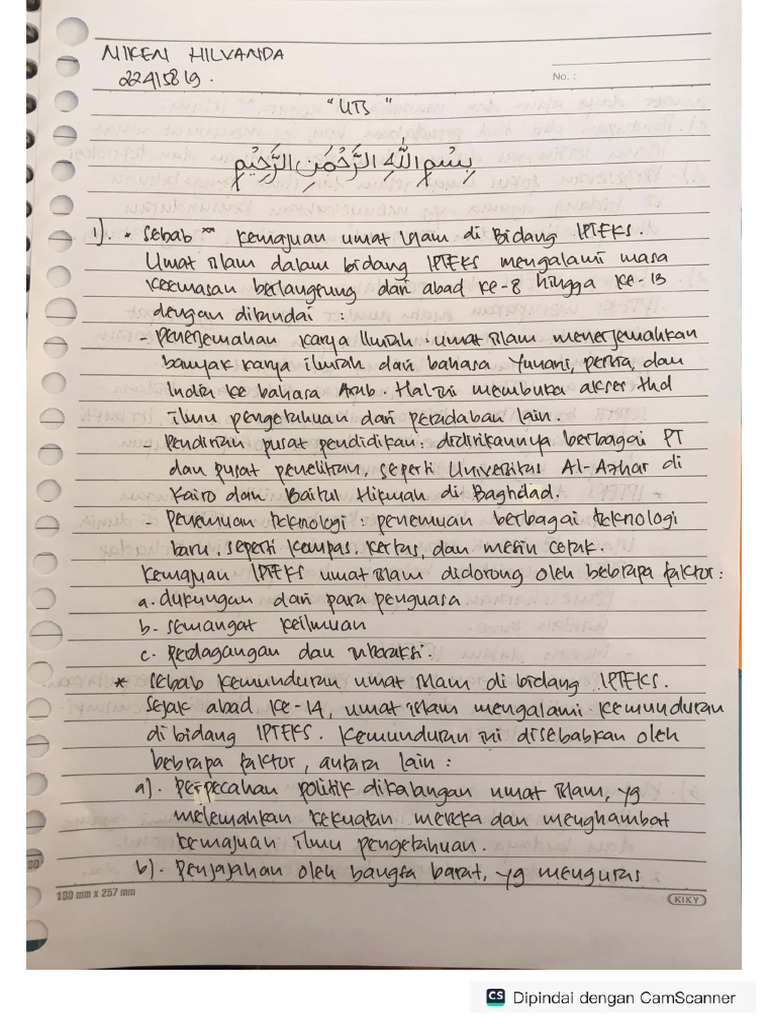 NIKEN HILVANDA
22415819.
No. :
"UTS"
بِسْمِ اللَّهِ الرَّحْمَنِ الرَّحِيْمِ
1). • Sebab" kemajuan umat Islam di Bidang IPTEKS.
Umat Islam dalam bidang IPTEKS mengalami masa
keemasan berlangsung dari abad ke-8 hingga ke-13
dengan ditandai :
- Penerjemahan karya Ilmiah : umat Islam menerjemahkan
banyak karya ilmiah dari bahasa Yunani, persia, dan
India ke bahasa Arab. Hal ini membuka akses thd
ilmu pengetahuan dari peradaban lain.
- Pendirian pusat pendidikan : didirikannya berbagai PT
dan pusat penelitian, seperti Universitas Al-Azhar di
Kairo dan Baitul Hikmah di Baghdad.
- Penemuan teknologi : penemuan berbagai teknologi
baru, seperti kompas, kertas, dan mesin cetak.
Kemajuan IPTEKS umat Islam didorong oleh bebrapa faktor :
a. dukungan dari para penguasa
b. semangat keilmuan
c. Perdagangan dan interaksi.
* Sebab kemunduran umat Islam di bidang IPTEKS.
Sejak abad ke-14, umat Islam mengalami kemunduran
di bidang IPTEKS. Kemunduran ini disebabkan oleh
bebrapa faktor, antara lain :
a). Perpecahan politik dikalangan umat Islam, yg
melemahkan kekuatan mereka dan menghambat
kemajuan ilmu pengetahuan.
b). Penjajahan oleh bangsa barat, yg menguras
180 mm x 257 mm
KIKY
CS Dipindai dengan CamScanner